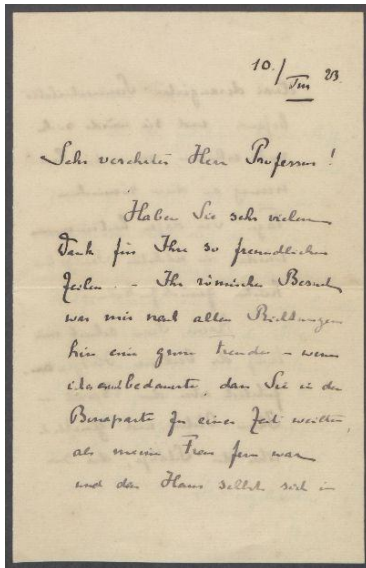 10./VIII 23.
Sehr verehrter Herr Professor!
Haben Sie sehr vielen
Dank für Ihre so freundlichen
Zeilen. - Ihr römischer Besuch
war mir nach allen Richtungen
hin eine grosse Freude - wenn
ich auch bedauerte, dass Sie in der
Bonaparte zu einer Zeit weilten,
als meine Frau fern war
und das Haus selbst sich in